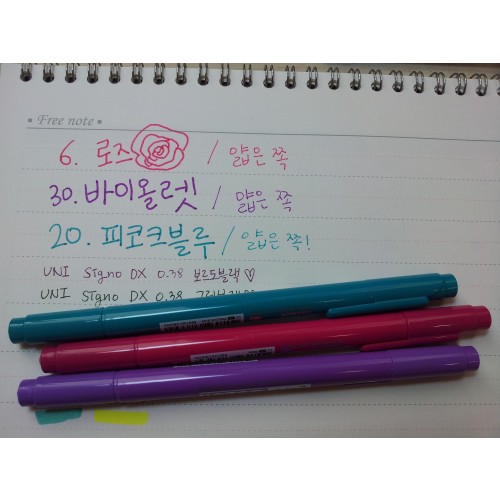 • Free note •
6. 로즈 / 얇은 쪽
30. 바이올렛 / 얇은 쪽
20. 피코크블루 / 얇은 쪽!
UNI Signo DX 0.38 보르도블랙♡
UNI Signo DX 0.38